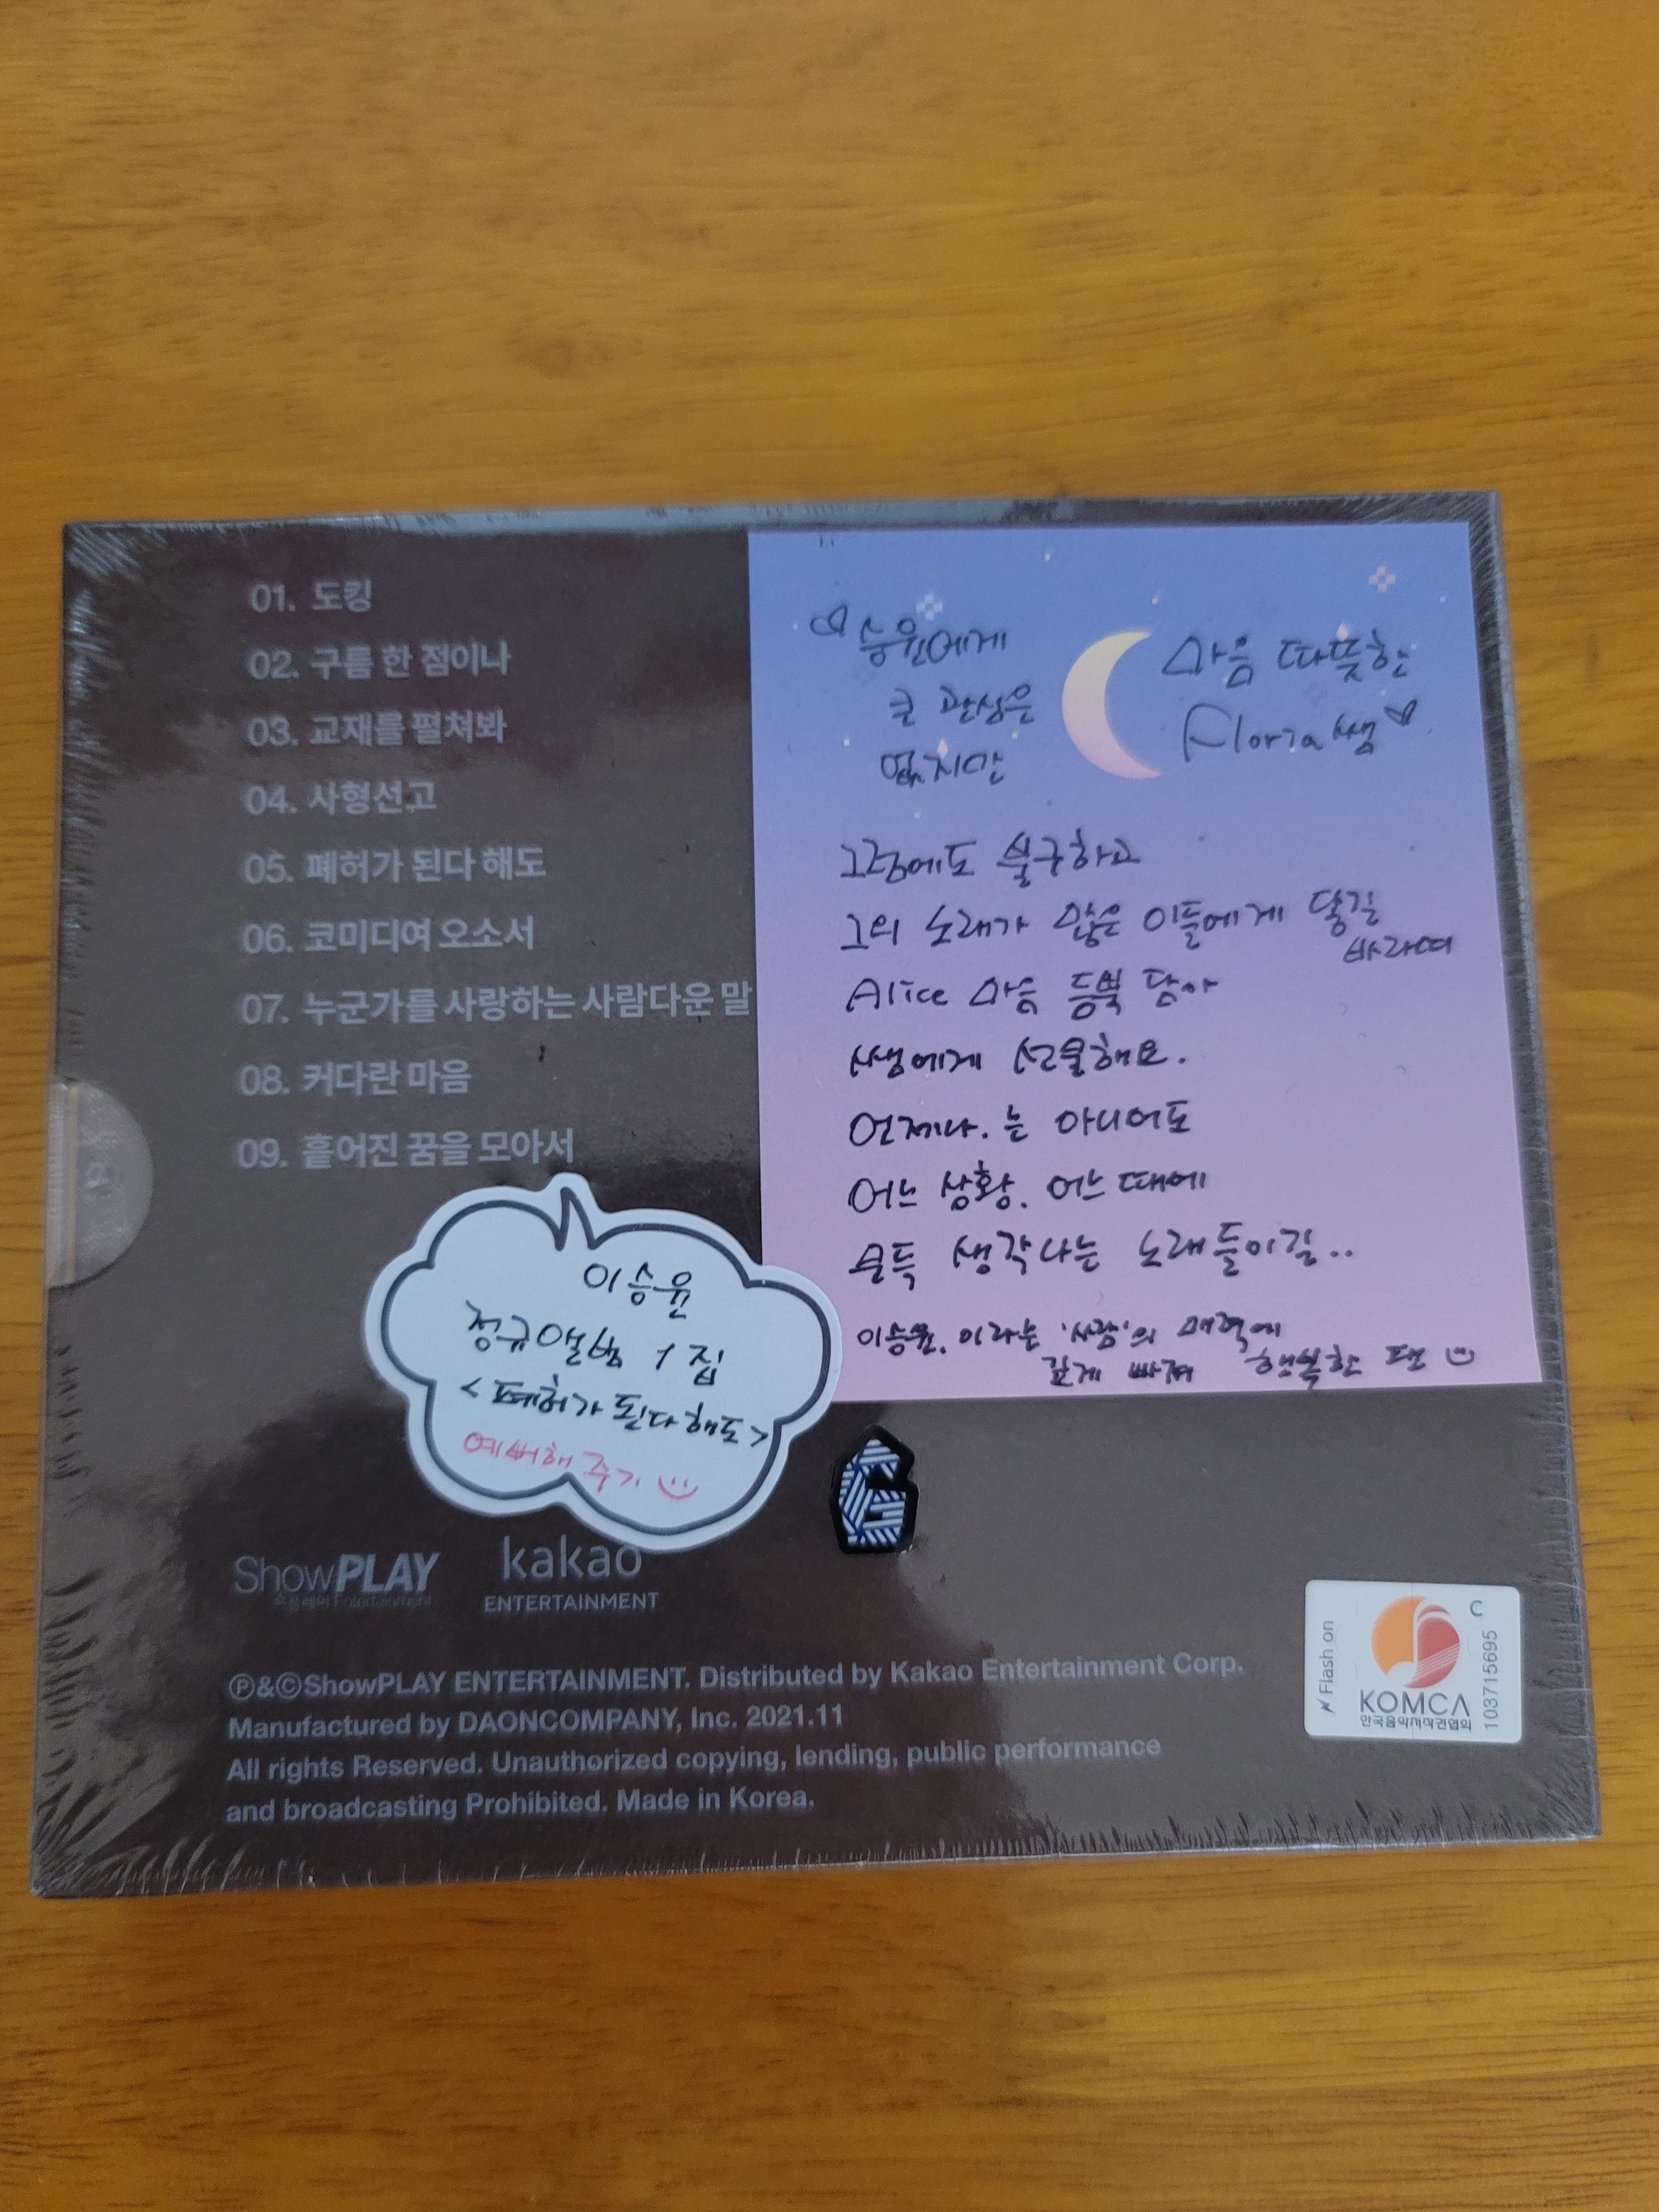 01. 도킹
02. 구름 한 점이나
03. 교재를 펼쳐봐
04. 사형선고
05. 폐허가 된다 해도
06. 코미디여 오소서
07. 누군가를 사랑하는 사람다운 말
08. 커다란 마음
09. 흩어진 꿈을 모아서
승윤에게
큰 관심은
없지만
마음 따뜻한
Floria쌤
그럼에도 불구하고
그의 노래가 많은 이들에게 닿길
바라며
Alice 마음 듬뿍 담아
쌤에게 선물해요.
언제나.는 아니어도
어느 상황. 어느 때에
문득 생각나는 노래들이길..
이승윤.이라는 '사람'의 매력에
깊게 빠져 행복한 팬
이승윤
정규앨범 1집
<폐허가 된다 해도>
예뻐해 주기
G
ShowPLAY
쇼플레이 Entertainment
kakao
ENTERTAINMENT
Ⓟ&ⒸShowPLAY ENTERTAINMENT. Distributed by Kakao Entertainment Corp.
Manufactured by DAONCOMPANY, Inc. 2021.11
All rights Reserved. Unauthorized copying, lending, public performance
and broadcasting Prohibited. Made in Korea.
Flash on
C
KOMCA
한국음악저작권협회
103715695